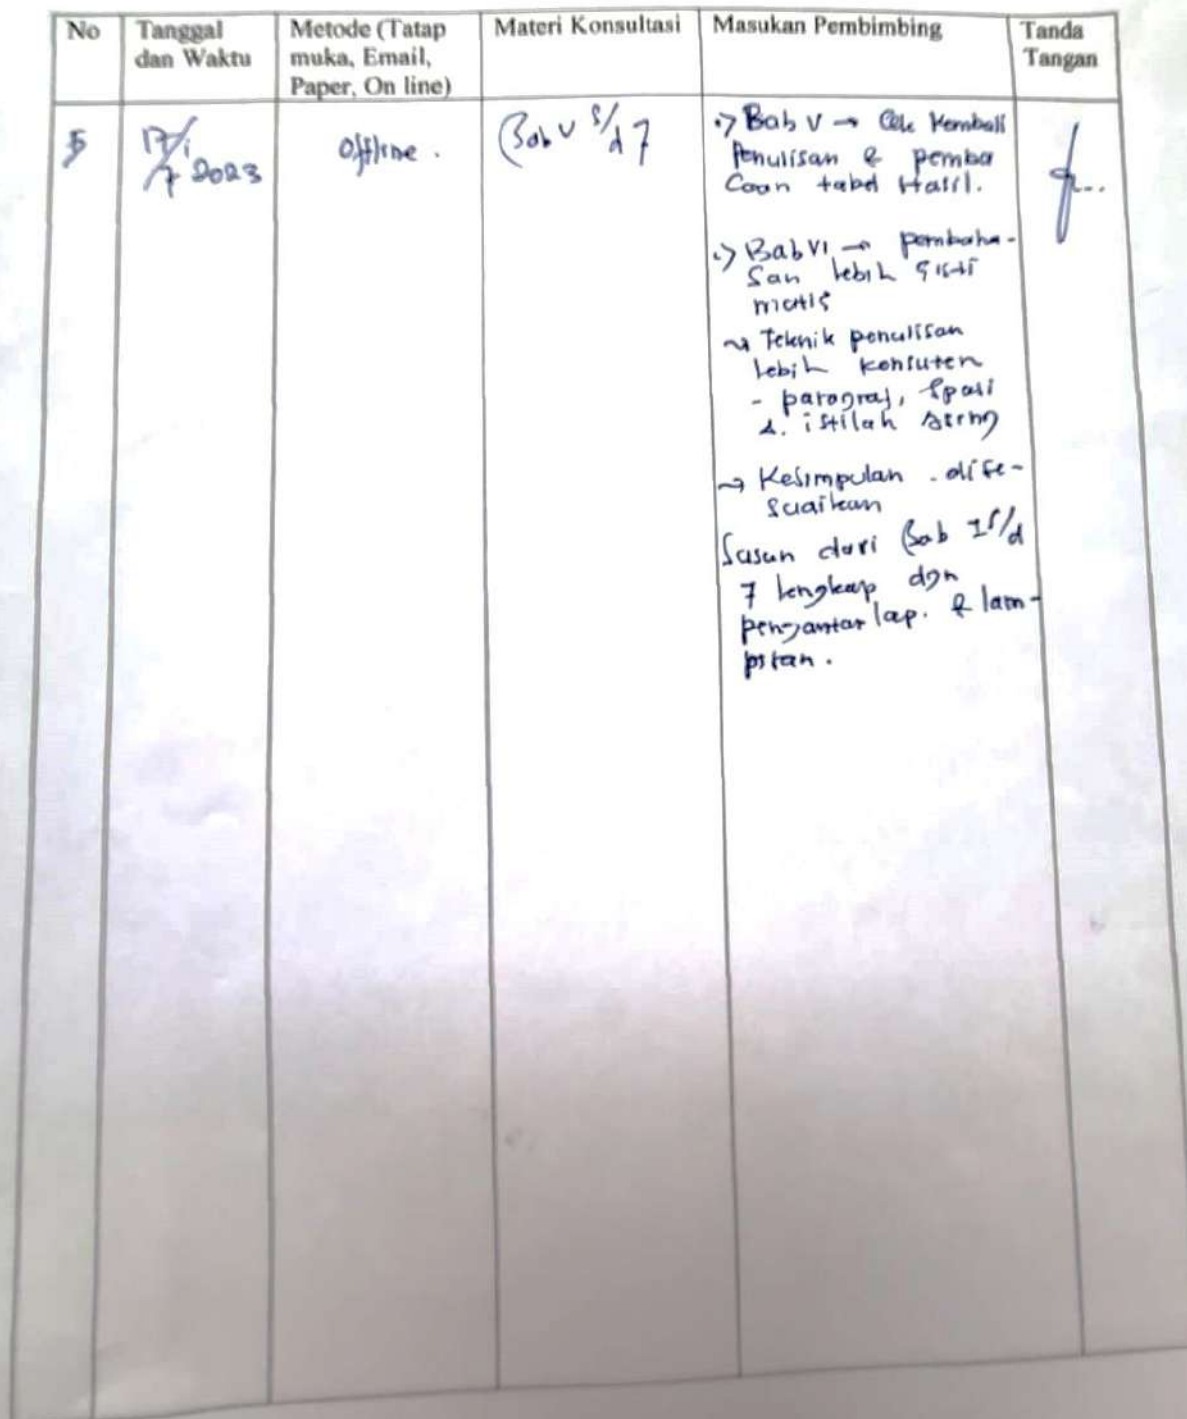 No
Tanggal
dan Waktu
Metode (Tatap
muka, Email,
Paper, On line)
Materi Konsultasi
Masukan Pembimbing
Tanda
Tangan
5
17/7 2023
Offline .
Bab V s/d 7
Bab V → Cek Kembali
Penulisan & pemba
Caan tabel Hasil.
Bab VI → pembaha-
San lebih Sisti
matis
Teknik penulisan
lebih konsisten
- paragraf, Spasi
istilah asing
→ Kesimpulan . dise-
suaikan
Susun dari Bab I s/d
7 lengkap dgn
pengantar lap. & lam-
piran .